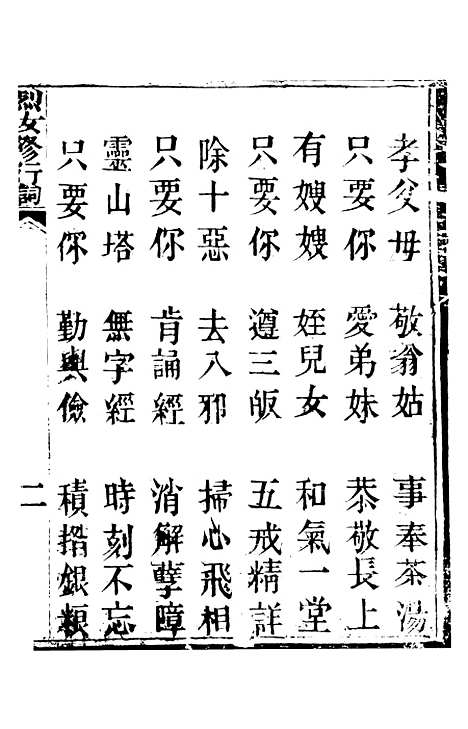 孝父母 敬翁姑 事奉茶湯
只要你 愛弟妹 恭敬長上
有嫂嫂 姪兒女 和氣一堂
只要你 遵三皈 五戒精詳
除十惡 去八邪 掃心飛相
只要你 肯誦經 消解孽障
靈山塔 無字經 時刻不忘
只要你 勤與儉 積揩銀粮
烈女修行詞 二